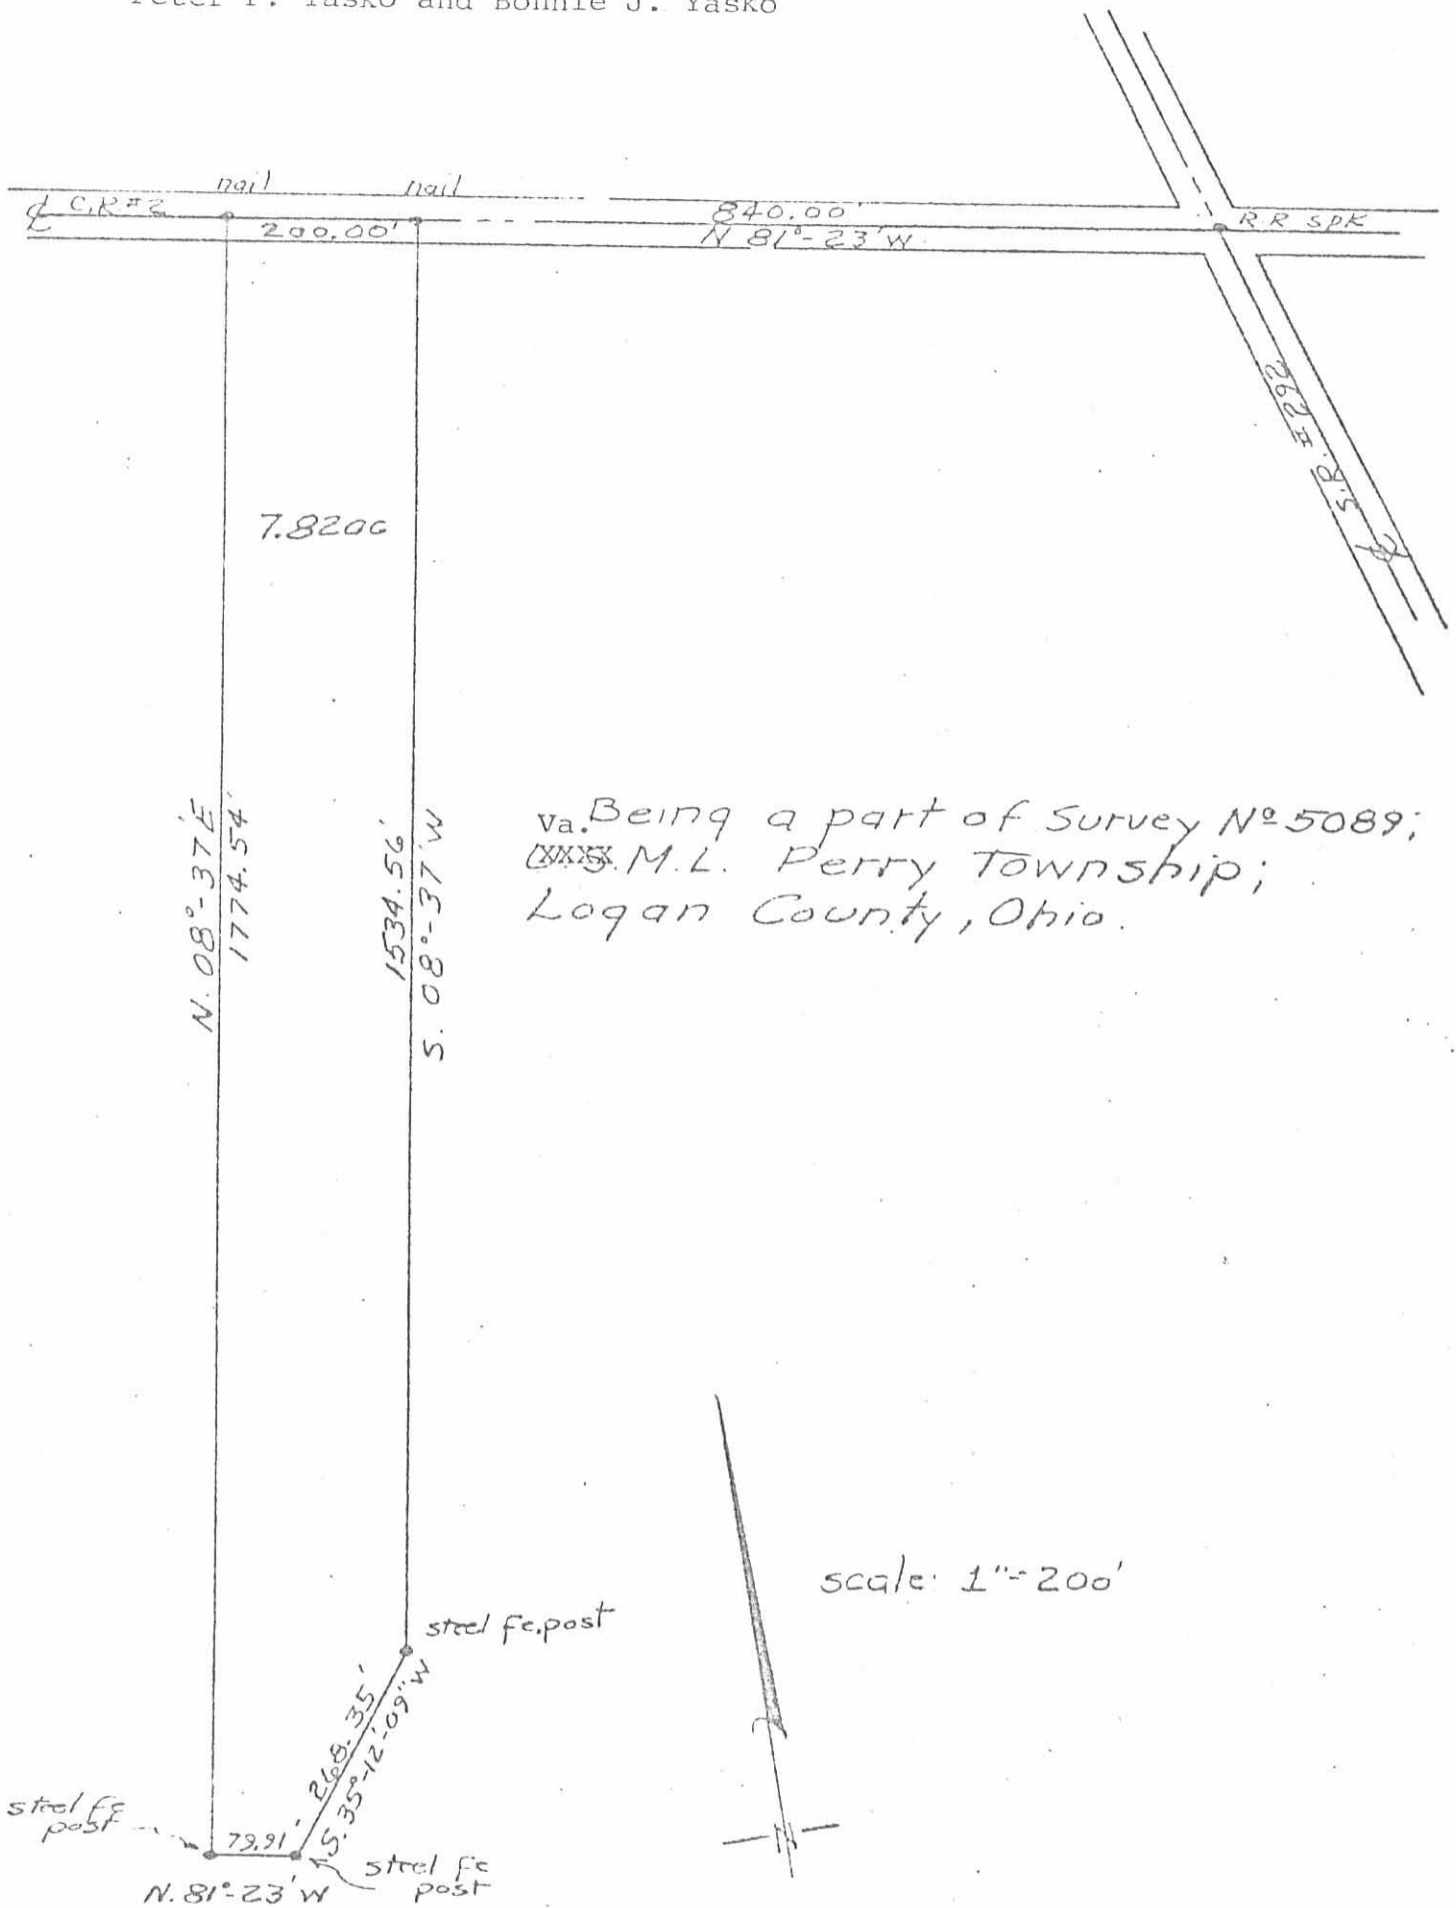 Peter P. Yasko and Bonnie J. Yasko
nail
nail
℄ C.R #2
200.00'
840.00'
N 81°-23'W
R.R SPK
S.R. # 292
℄
7.82ac
N. 08°-37'E
1774.54'
1534.56'
S. 08°-37'W
Va. Being a part of Survey Nº 5089;
M.L. Perry Township;
Logan County, Ohio.
scale: 1"=200'
steel fe.post
268.35'
S. 35°-12'-09"W
steel fe
post
79.91'
steel fe
post
N. 81°-23'W